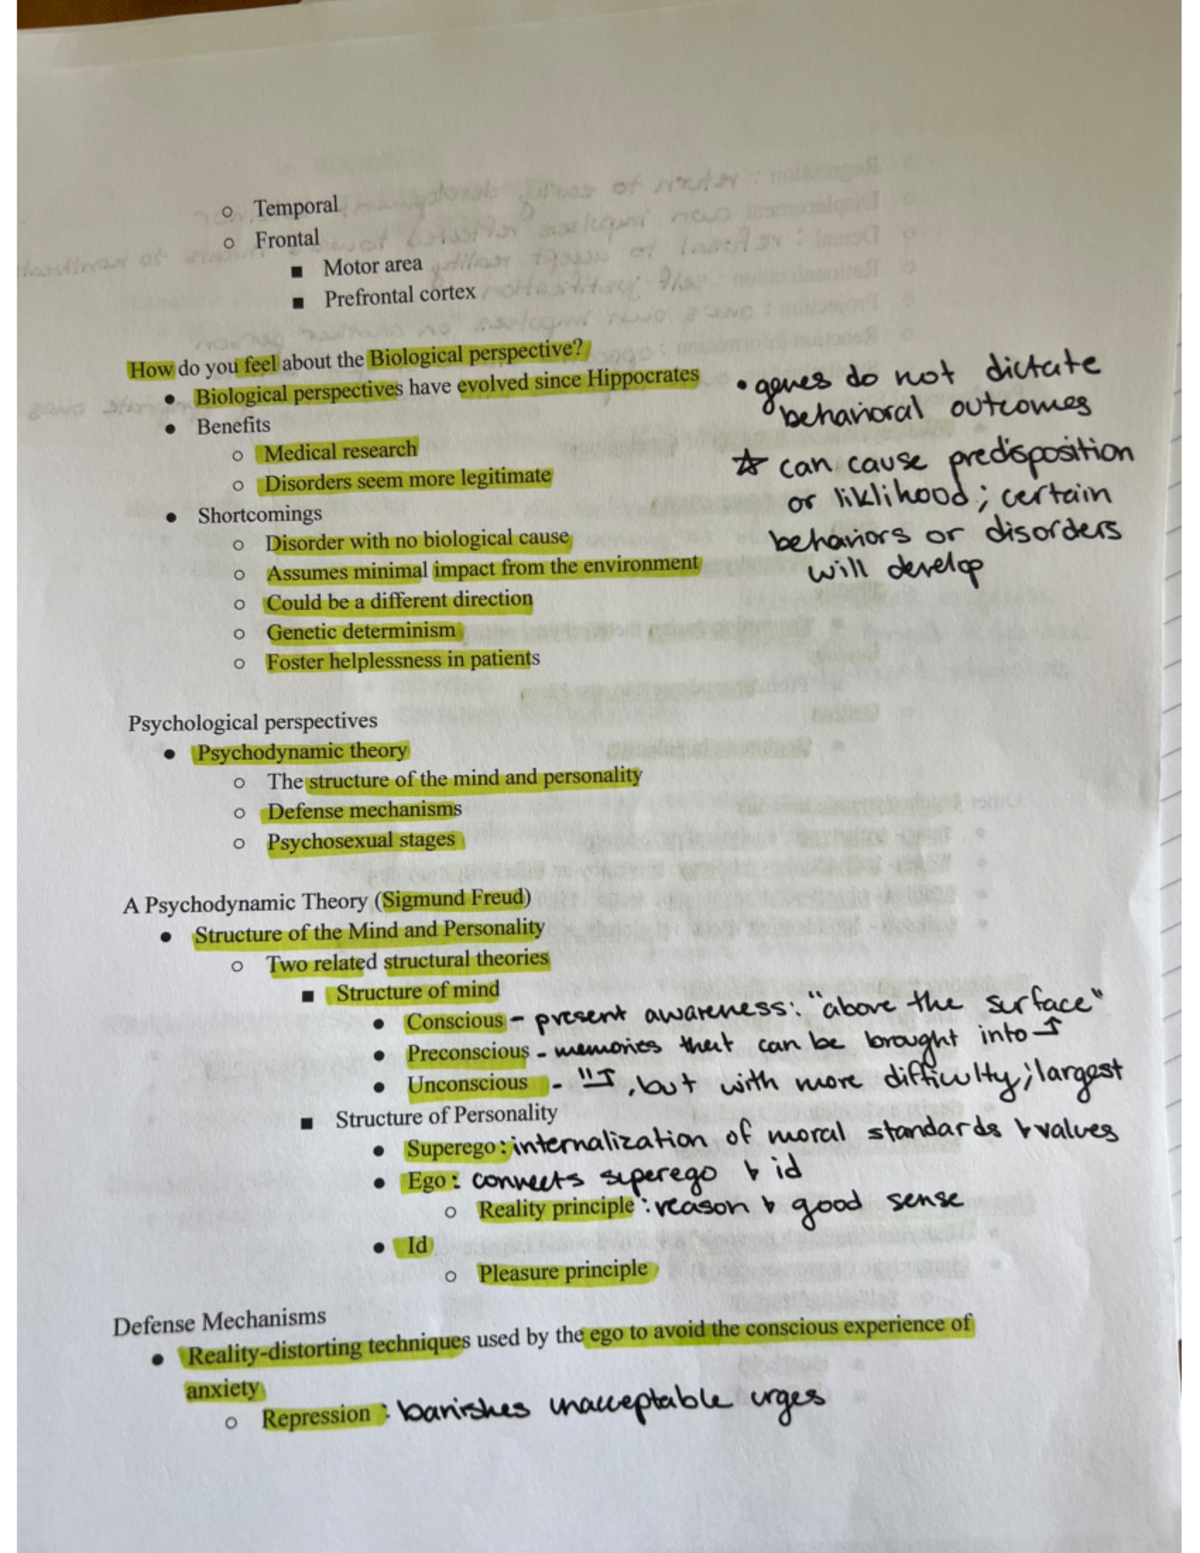 ○ Temporal
○ Frontal
■ Motor area
■ Prefrontal cortex
How do you feel about the Biological perspective?
● Biological perspectives have evolved since Hippocrates
• genes do not dictate
behavioral outcomes
● Benefits
○ Medical research
☆ can cause predisposition
○ Disorders seem more legitimate
or liklihood; certain
● Shortcomings
behaviors or disorders
○ Disorder with no biological cause
will develop
○ Assumes minimal impact from the environment
○ Could be a different direction
○ Genetic determinism
○ Foster helplessness in patients
Psychological perspectives
● Psychodynamic theory
○ The structure of the mind and personality
○ Defense mechanisms
○ Psychosexual stages
A Psychodynamic Theory (Sigmund Freud)
● Structure of the Mind and Personality
○ Two related structural theories
■ Structure of mind
● Conscious – present awareness: "above the surface"
● Preconscious – memories that can be brought into ↑
● Unconscious – "↑, but with more difficulty; largest
■ Structure of Personality
● Superego: internalization of moral standards & values
● Ego: connects superego & id
○ Reality principle: reason & good sense
● Id
○ Pleasure principle
Defense Mechanisms
● Reality-distorting techniques used by the ego to avoid the conscious experience of
anxiety
○ Repression: banishes unacceptable urges